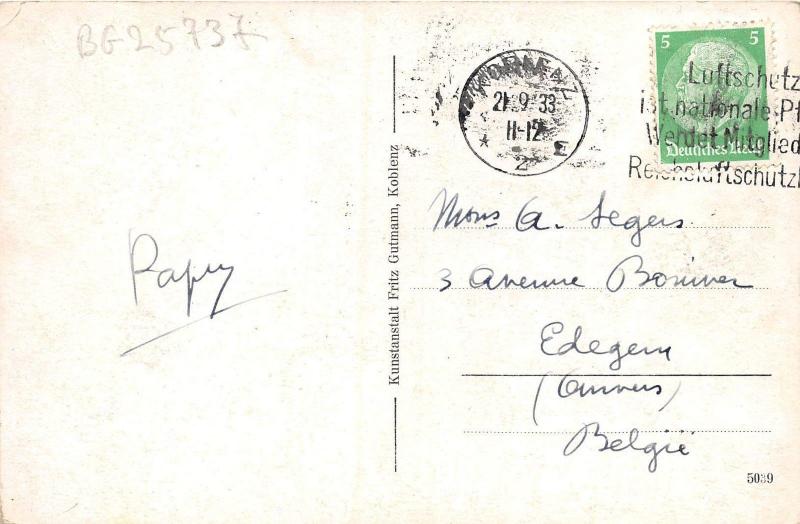 BG25737
5 5
Deutsches Reich
21.9.33
11-12
2
Luftschutz
ist nationale Pf
Werdet Mitglied
Reichsluftschutzb
Kunstanstalt Fritz Gutmann, Koblenz
Papy
Mons A. Segers
3 Avenue
Edegem
(Anvers)
België
5039